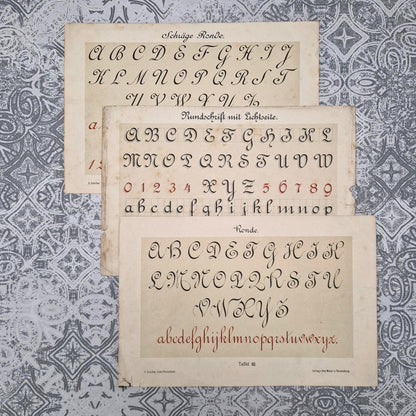 Schräge Ronde.
A B C D E F G H I J
K L M N O P Q R S T
U V W X Y Z
Rundschrift mit Lichtseite.
A B C D E F G H I K L
M N O P Q R S T U V W
0 1 2 3 4 X Y Z 5 6 7 8 9
a b c d e f g h i j k l m n o p
Ronde.
A B C D E F G H I J K
L M N O P Q R S T U
V W X Y Z
abcdefghijklmnopqrstuvwxyz.
Tafel 10.